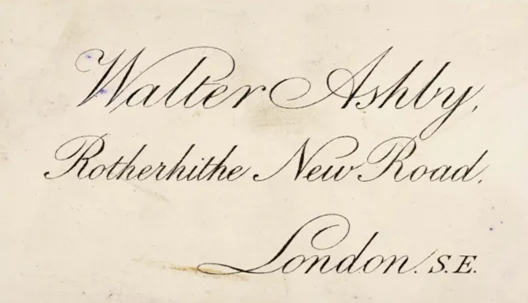 Walter Ashby,
Rotherhithe New Road.
London. S.E.